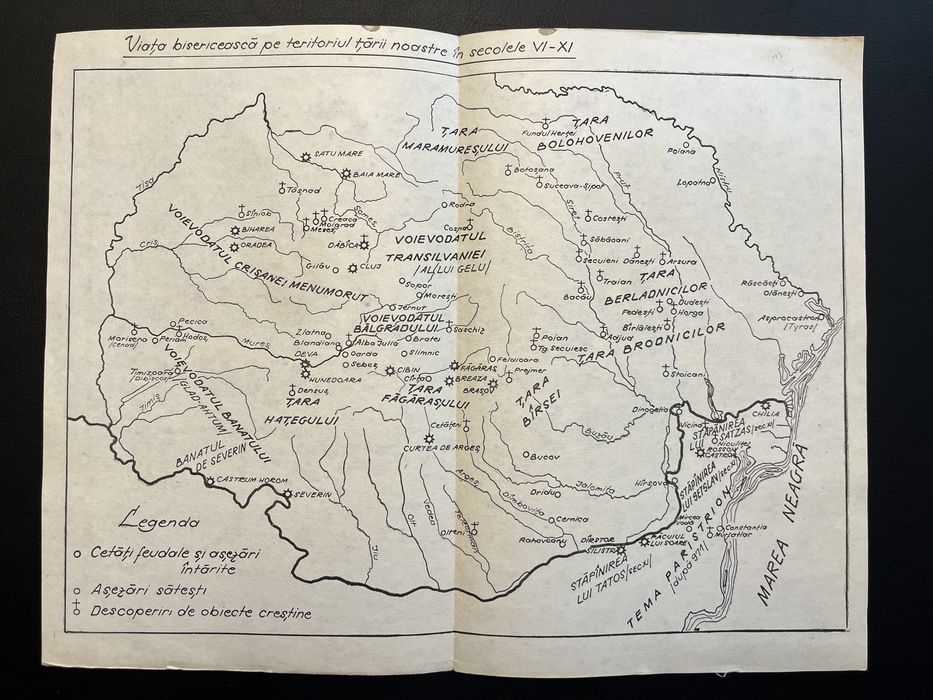 Viața bisericească pe teritoriul țării noastre în secolele VI-XI
ȚARA
MARAMUREȘULUI
Fundul Herței
ȚARA
BOLOHOVENILOR
Poiana
Nistru
Lopatna
SATU MARE
BAIA MARE
Tășnad
Tisa
Botoșana
Suceava-Șipot
Prut
Siret
Rodna
Someș
Siniob
Creaca
Moigrad
Meseș
BIHAREA
ORADEA
DĂBÎCA
Coșna
Costești
Săbăoani
Bistrița
VOIEVODATUL CRIȘANEI MENUMORUT
Criș
VOIEVODATUL
TRANSILVANIEI
/AL LUI GELU/
Gilău
CLUJ
Sopor
Morești
Secuieni
Dănești
Arsura
Traian
ȚARA
BERLADNICILOR
Bacău
Dudești
Fedești
Horga
Bîrlălești
Răscăeți
Olănești
Asprocastron
/Tyras/
Jernut
VOIEVODATUL
BĂLGRADULUI
Saschiz
Pecica
Morisena
/Cenad/
Periam
Hodoș
Mureș
Zlatna
Blandiana
Alba Iulia
Bratei
Poian
Tg. Secuiesc
Adjud
ȚARA BRODNICILOR
DEVA
Garda
Slimnic
Sebeș
HUNEDOARA
CIBIN
FĂGĂRAȘ
Feldioara
BREAZA
Prejmer
BRAȘOV
Stoicani
Timișoara
/Tibiscop/
Timiș
VOIEVODATUL BANATULUI
/GLAD-AHTUM/
Densuș
ȚARA
HAȚEGULUI
ȚARA
FĂGĂRAȘULUI
ȚARA
BÎRSEI
Dinogetia
CHILIA
BANATUL
DE SEVERIN
Cetățeni
CURTEA DE ARGEȘ
Buzău
Bucov
STĂPÎNIREA
LUI SATZAS /sec.XI/
Niculițel
CASTRUM HOROM
SEVERIN
Argeș
Dîmbovița
Dridu
Ialomița
Hîrșova
STĂPÎNIREA
LUI SESTLAV /sec.XI/
MAREA NEAGRĂ
Jiu
Olt
Vedea
Teleorman
Olteni
Cernica
Rahoveanu
DÎRSTOR
SILISTRA
PĂCUIUL
LUI SOARE
Mircea
Vodă
Constanța
Murfatlar
STĂPÎNIREA
LUI TATOS /sec.XI/
TEMA PARISTRION
/după 971/
Legenda
Cetăți feudale și așezări
întărite
Așezări sătești
Descoperiri de obiecte creștine